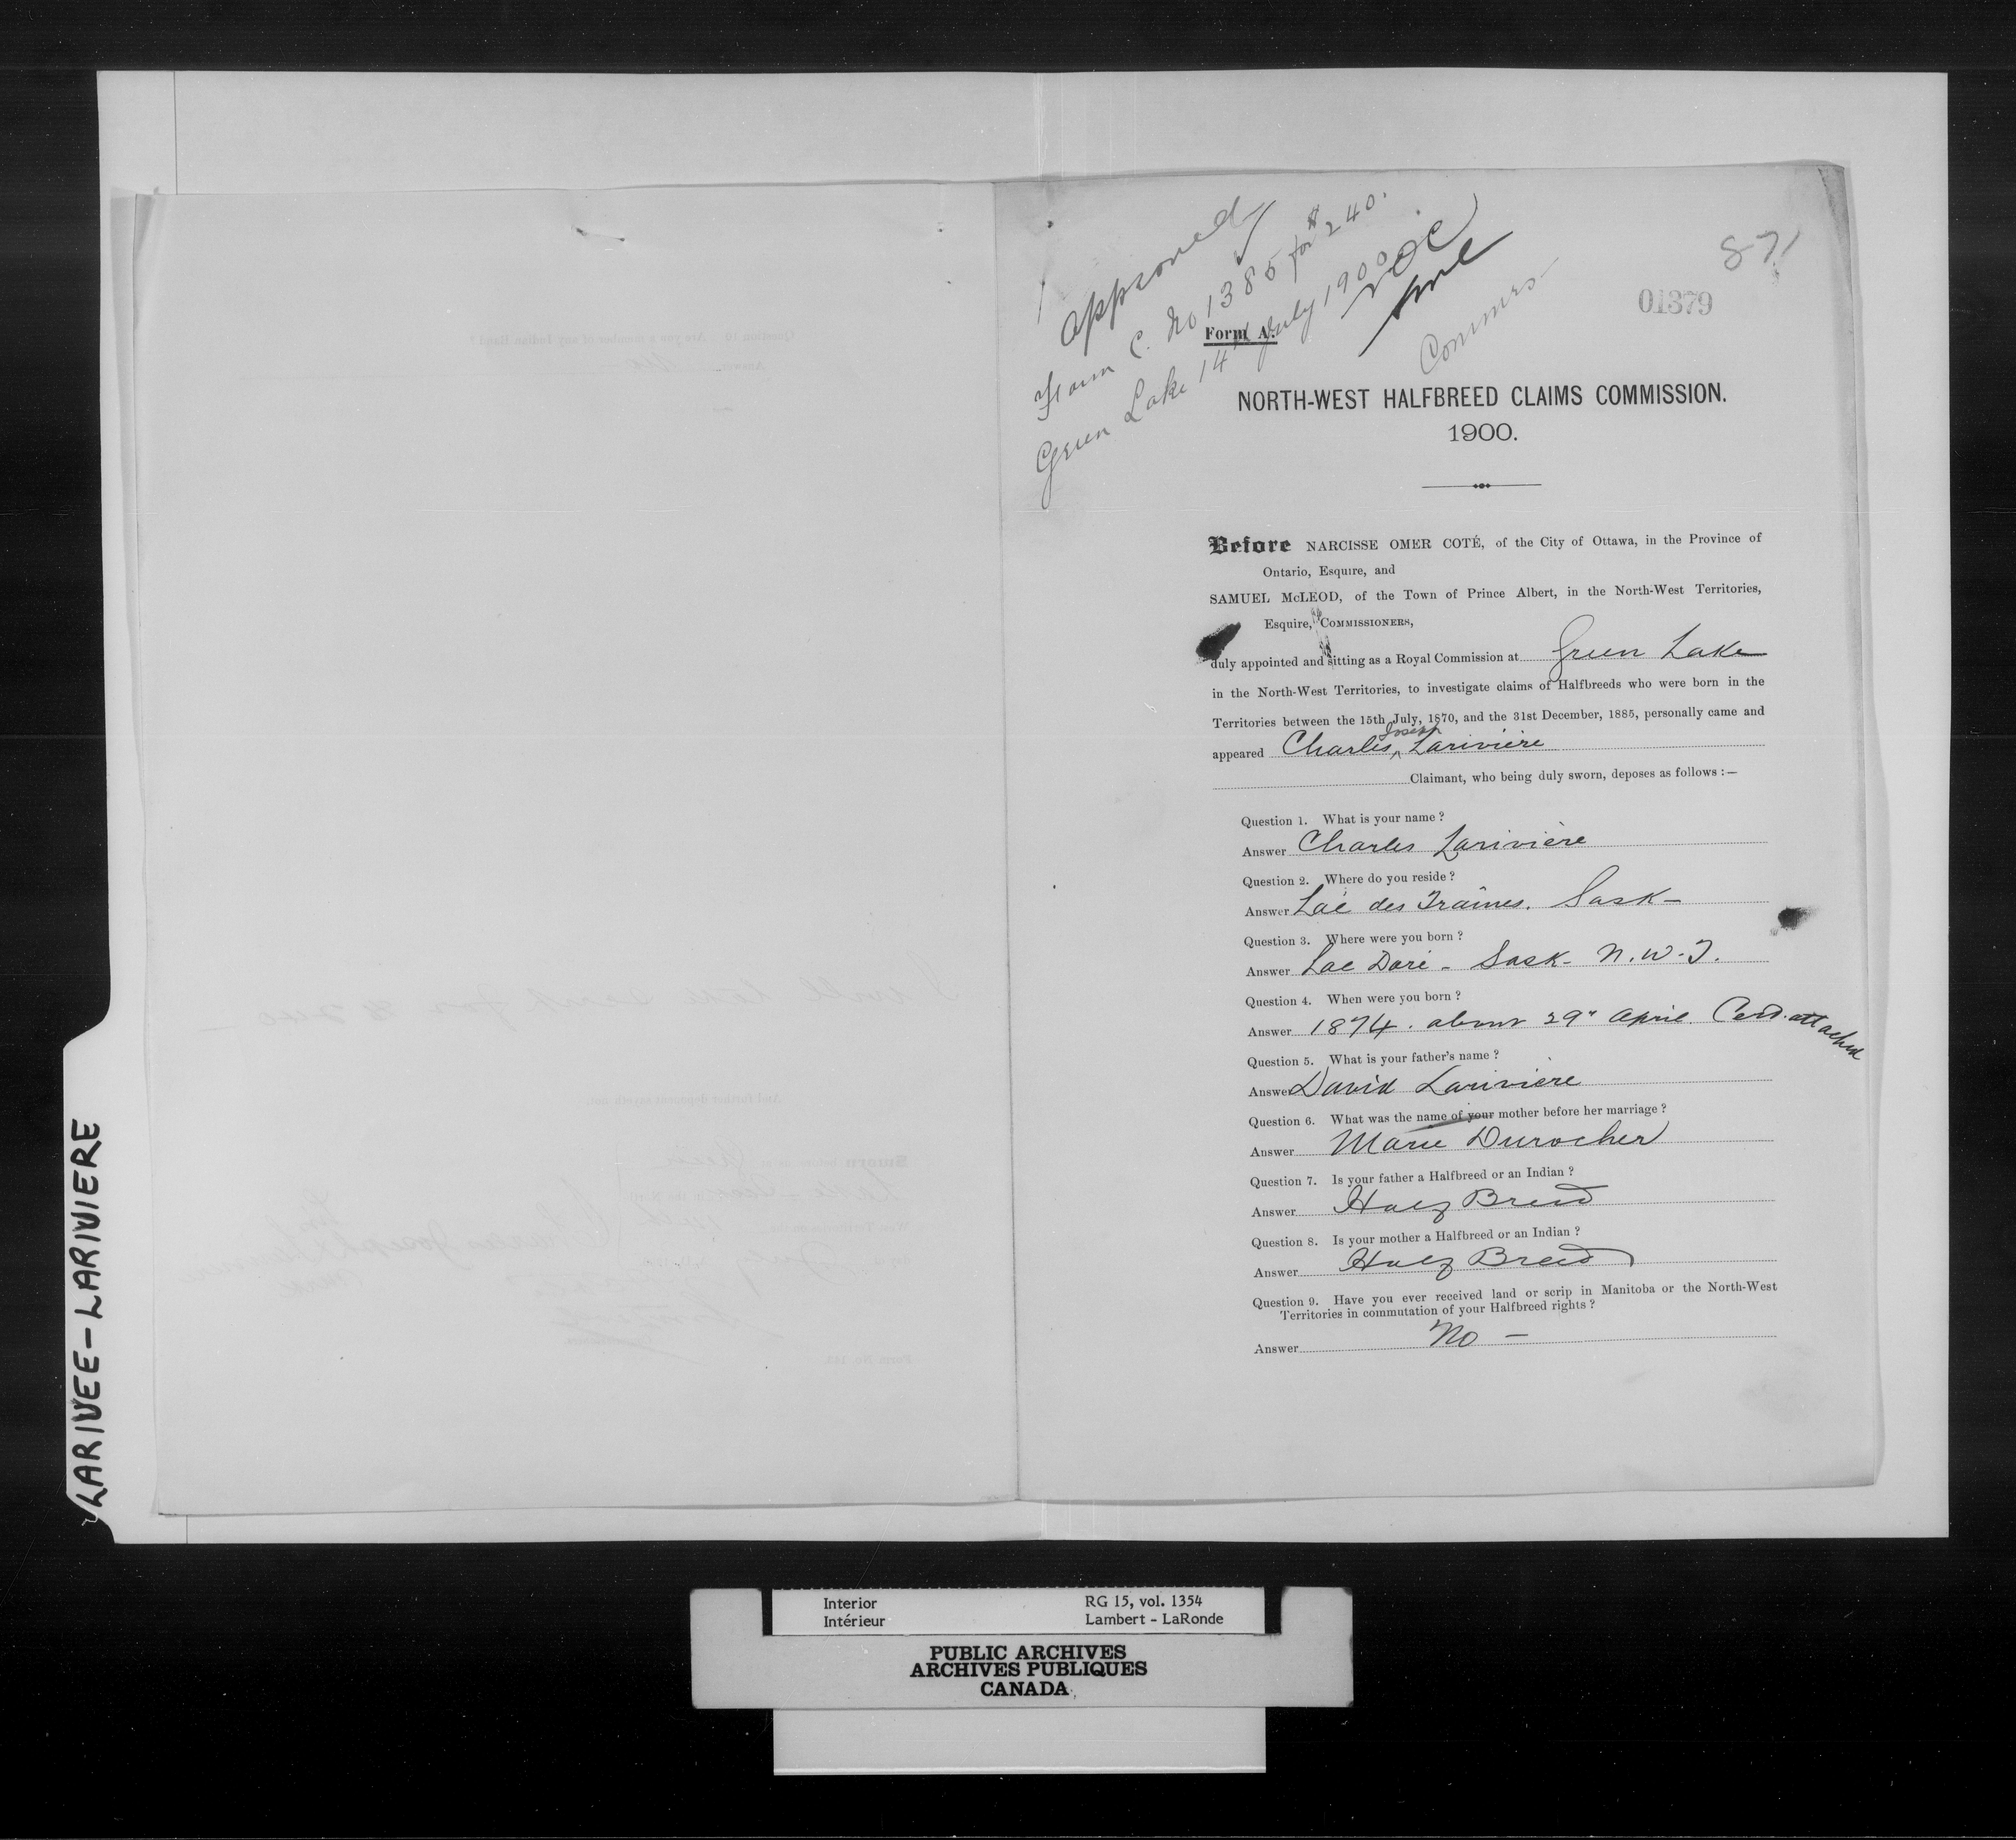 approved
Form C. No 1385 for $240.
Green Lake 14th July 1900
NOC
Commrs
87
01379
Form A.
NORTH-WEST HALFBREED CLAIMS COMMISSION.
1900.
Before NARCISSE OMER COTÉ, of the City of Ottawa, in the Province of
Ontario, Esquire, and
SAMUEL McLEOD, of the Town of Prince Albert, in the North-West Territories,
Esquire, COMMISSIONERS,
duly appointed and sitting as a Royal Commission at Green Lake
in the North-West Territories, to investigate claims of Halfbreeds who were born in the
Territories between the 15th July, 1870, and the 31st December, 1885, personally came and
appeared Charles Joseph Larivière
Claimant, who being duly sworn, deposes as follows :—
Question 1. What is your name ?
Answer Charles Larivière
Question 2. Where do you reside ?
Answer Lac des Traines. Sask —
Question 3. Where were you born ?
Answer Lac Doré - Sask - N. W. T.
Question 4. When were you born ?
Answer 1874. about 29" April. Cert. attached
Question 5. What is your father's name ?
Answer David Larivière
Question 6. What was the name of your mother before her marriage ?
Answer Marie Durocher
Question 7. Is your father a Halfbreed or an Indian ?
Answer Half Breed
Question 8. Is your mother a Halfbreed or an Indian ?
Answer Half Breed
Question 9. Have you ever received land or scrip in Manitoba or the North-West
Territories in commutation of your Halfbreed rights ?
Answer No —
LARIVEE-LARIVIERE
Interior RG 15, vol. 1354
Intérieur Lambert - LaRonde
PUBLIC ARCHIVES
ARCHIVES PUBLIQUES
CANADA